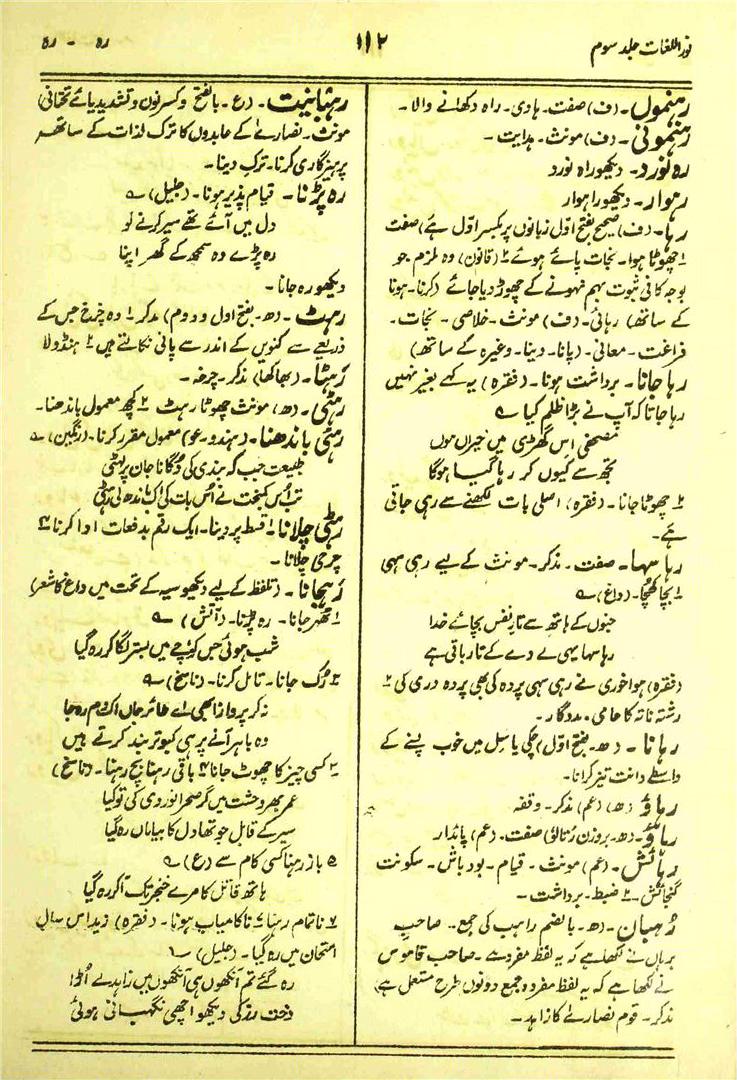 نور اللغات جلد سوم
۱۱۲
رہ - رہ
رہنموں ۔ (ف) صفت ۔ ہادی ۔ راہ دکھانے والا ۔
رہنمونی ۔ (ف) مونث ۔ ہدایت ۔
رہ نورد ۔ دیکھو راہ نورد
رہوار ۔ دیکھو راہوار
رہا ۔ (ف) صحیح بفتح اوّل زبانوں پر بکسر اوّل ہے) صفت
۱ چھوٹا ہوا ۔ نجات پائے ہوئے ۲ (قانون) وہ ملزم جو
بوجہ کافی ثبوت بہم نہونے کے چھوڑ دیا جائے (کرنا ۔ ہونا
کے ساتھ) رہائی ۔ (ف) مونث ۔ خلاصی ۔ نجات ۔
فراغت ۔ معافی ۔ (پانا ۔ دینا ۔ وغیرہ کے ساتھ)
رہا جانا ۔ برداشت ہونا ۔ (فقرہ) یہ کہے بغیر نہیں
رہا جاتا کہ آپ نے بڑا ظلم کیا ؎
مصحفی اس گھڑی میں حیراں ہوں
تجھ سے کیوں کر رہا گیا ہوگا
۲ چھوٹا جانا ۔ (فقرہ) اصلی بات لکھنے سے رہی جاتی
ہے ۔
رہا سہا ۔ صفت ۔ مذکر ۔ مونث کے لیے رہی سہی
۱ بچا کھچا ۔ (داغ) ؎
جنوں کے ہاتھ سے تار نفس بچائے خدا
رہا سہا یہی لے دے کے تار باقی ہے
(فقرہ) ہوا خوری نے رہی سہی پردہ کی بھی پردہ دری کی ۲
رشتہ ناتہ کا حامی ۔ مددگار ۔
رہانا ۔ (ھ ۔ بفتح اوّل) چکی یا سل میں خوب پسنے کے
واسطے دانت تیز کرانا ۔
رہاؤ (ھ) (عم) مذکر ۔ وقفہ
رہاؤ ۔ (ھ ۔ بروزن صفت ۔ (عم) پائدار
رہائش ۔ (عم) مونث ۔ قیام ۔ بود باش ۔ سکونت
گنجائش ۔ ۲ ضبط ۔ برداشت ۔
رُہبان ۔ (ھ ۔ بالضم راہب کی جمع ۔ صاحب
برہاں نے لکھا ہے کہ یہ لفظ مفرد ہے ۔ صاحب قاموس
نے لکھا ہے کہ یہ لفظ مفرد و جمع دونوں طرح مستعمل ہے)
مذکر ۔ قوم نصاریٰ کا زاہد ۔
رہبانیت ۔ (ع ۔ بالفتح و کسر نون و تشدید یائے تحتانی)
مونث ۔ نصاریٰ کے عابدوں کا ترک لذات کے ساتھ
پرہیزگاری کرنا ۔ ترک دینا ۔
رہ پڑنا ۔ قیام پذیر ہونا ۔ (جلیل) ؎
دل میں آئے تھے سیر کرنے لو
رہ پڑے وہ سمجھ کے گھر اپنا
دیکھو رہ جانا ۔
رہٹ ۔ (ھ ۔ بفتح اول و دوم) مذکر ۱ وہ چرخ جس کے
ذریعے سے کنویں کے اندر سے پانی نکالتے ہیں ۲ ہنڈولا
رَہٹا ۔ (بھاکھا) مذکر ۔ چرخہ ۔
رہٹی ۔ (ھ) مونث چھوٹا رہٹ ۲ کچھ معمول باندھنا ۔
رہٹی باندھنا ۔ (ہندو ۔ عو) معمول مقرر کرنا ۔ (رنگین) ؎
طبیعت جب کہ بندی کی دوگانا جان پر
تب اُس کمبخت نے اُس بات کی اک باندھ لی رہٹی
رہٹی چلانا ۱ قسط پر دینا ۔ ایک رقم بدفعات ادا کرنا ۲
چلانا ۔
رَہجانا ۔ (تلفظ کے لیے دیکھو سیہ کے تحت میں داغ کا شعر)
۱ ٹھہر جانا ۔ رہ پڑنا ۔ (آتش) ؎
شب ہوئی جس کوچے میں بستر لگا کر رہ گیا
۲ رُک جانا ۔ تامل کرنا ۔ (ناسخ) ؎
نہ کر پرواز ابھی اے طائر جاں اک دم رہ جا
وہ باہر آنے پر ہی کبوتر بند کرتے ہیں
۳ کسی چیز کا چھوٹ جانا ۴ باقی رہنا بچ رہنا ۔ (ناسخ)
عمر بھر وحشت میں گر صحرا نوردی کی تو کیا
سیر کے قابل جو تھا دل کا بیاباں رہ گیا
۵ باز رہنا کسی کام سے (ع) ؎
ہاتھ قاتل کا مرے خنجر تک آکر رہ گیا
۶ ناتمام رہنا ۷ ناکامیاب ہونا ۔ (فقرہ) زید اس سال
امتحان میں رہ گیا ۔ (جلیل) ؎
رہ گئے تم آنکھوں ہی آنکھوں میں زاہد لے اُڑا
دخت رز کی دیکھو اچھی نگہبانی ہوئی